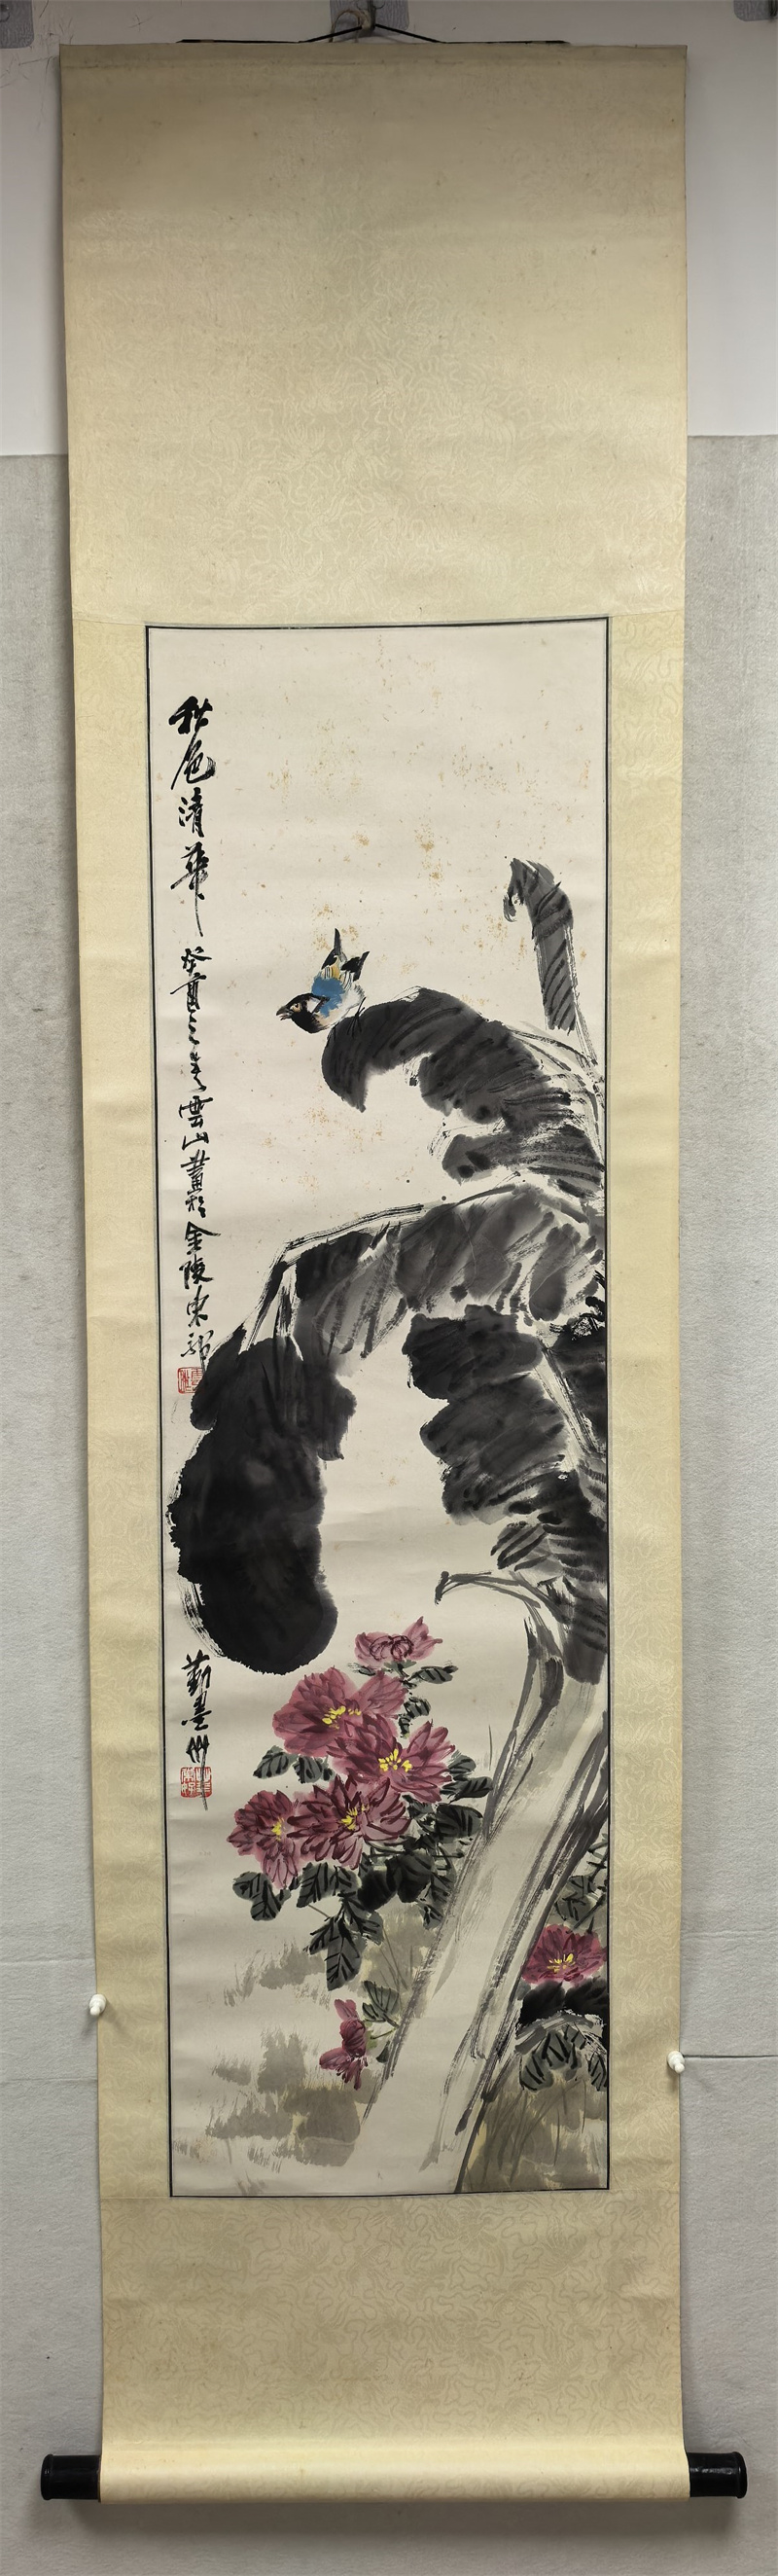 秋色清華
癸酉之春雲山畫於金陵東郊
勤墨州